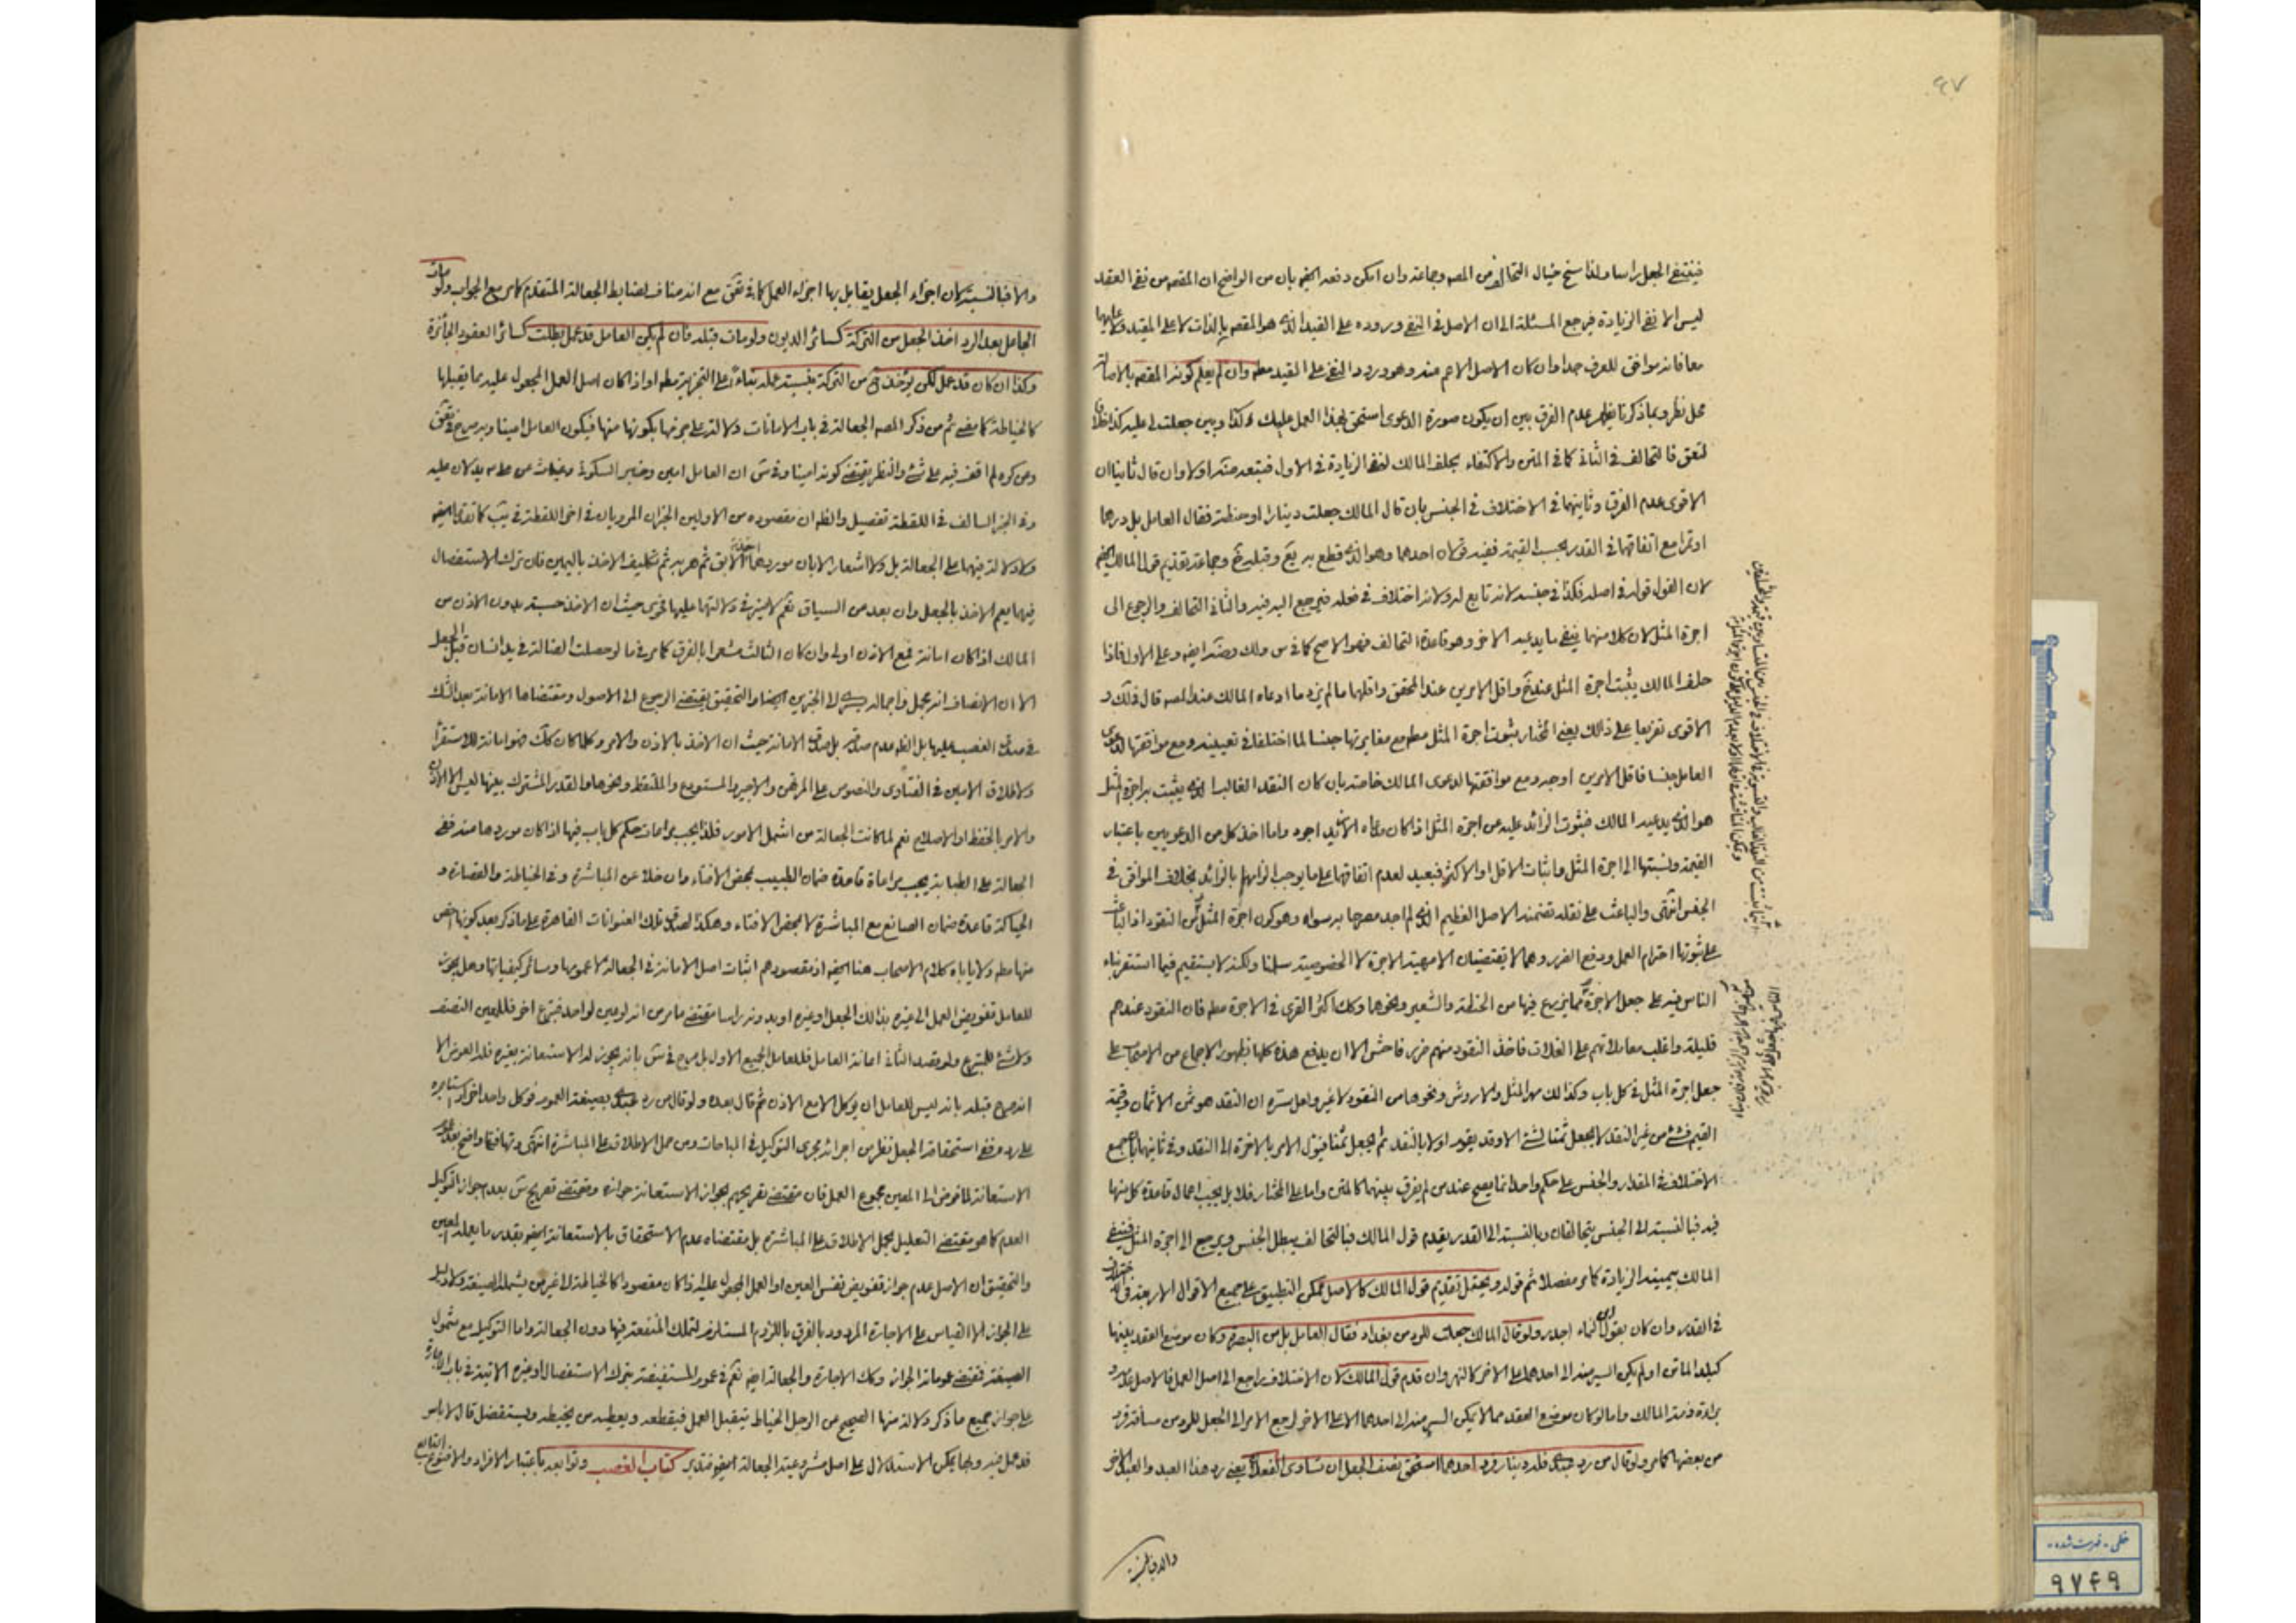 ٩٧
فينتفي الجعل راسا ولذا سنح خيال التحالف من المصه وجماعة وان امكن دفعه ايضه بان من الواضح ان المقصه من نفي العقد
ليس الا نفي الزيادة فيرجع المسئلة الى ان الاصل في النفي وروده على القيد الذي هو المقصه بالذات لا على المقيد
معا فانه موافق للعرف جدا وان كان الاصل الاعم منه وهو ورود النفي على المقيد مطه وان لم يعلم كونه المقصه بالاصالة
محل نظر وبما ذكرنا يظهر عدم الفرق بين ان يكون صورة الدعوى استحق بهذا العمل عليك كذا وبين جعلت لي عليه كذا
فالتحالف في الثاني كما في المتن والاكتفاء بحلف المالك لنفي الزيادة في الاول فيتعد منه اولا وان قال ثانيا ان
الاقوى عدم الفرق وثانيهما في الاختلاف في الجنس بان قال المالك جعلت دينارا او حنطة فقال العامل بل درهما
او تمرا مع اتفاقهما في القدر بحسب القيمة ففيه قولان احدهما وهو الذي قطع به يع وقبله وجماعة تقديم قول المالك ايضه
لان القول قوله في اصله فكذا في جنسه لانه تابع له ولانه اختلاف في فعله فيرجع اليه فيه والثاني التحالف والرجوع الى
اجرة المثل لان كلا منهما ينفي ما يدعيه الاخر وهو قاعدة التحالف فهو الاصح كما في س ولك وضه ايضه وعلى الاول فاذا
حلف المالك يثبت اجرة المثل عند يع واقل الامرين عند المحقق واقلهما ما لم يزد ما ادعاه المالك عند المصه قال في لك و
الاقوى تفريعا على ذلك يعني المختار ثبوت اجرة المثل مطه مع مغايرتها جنسا لما اختلفا في تعيينه ومع موافقتها لدعوى
العامل جنسا فاقل الامرين اوجه ومع موافقتها لدعوى المالك خاصة بان كان النقد الغالب الذي يثبت به اجرة المثل
هو الذي يدعيه المالك فثبوت الزائد عليه من اجرة المثل اذا كان دعواه الازيد اجود واما اخذ كل من الدعويين باعتبار
القيمة ونسبتها الى اجرة المثل واثبات الاقل او الاكثر فبعيد لعدم اتفاقهما على ما يوجب الزامهما بالزائد بخلاف الموافق في
الجنس انتهى والباعث على نقله تضمنه الاصل العظيم الذي لم اجد مصرحا به سواه وهو كون اجرة المثل من النقود اذ الباعث
على ثبوتها احترام العمل ودفع الضرر وهما لا يقتضيان الا مهية الاجرة لا الخصوصية سلمنا ولكنه لا يستقيم فيما استقر بناء
الناس فيه على جعل الاجرة مما يزرع فيها من الحنطة والشعير ونحوهما وكك اكثر القرى في الاجرة مطه فان النقود عندهم
قليلة واغلب معاملاتهم على الغلات فاخذ النقود منهم ضرر فاحش الا ان يدفع هذه كلها بظهور الاجماع من الاصحاب على
جعل اجرة المثل في كل باب وكذا لك مهر المثل والاروش ونحوها من النقود لا غير ولعل سره ان النقد هو ثمن الاثمان وقيمة
القيم فشئ من غير النقد لا يجعل ثمنا لشئ الا وقد يقوم اولا بالنقد ثم يجعل ثمنا فيؤل الامر بالاخرة الى النقد وفي ثانيهما بان جمع
الاختلاف في المقدار والجنس على حكم واحد انما يصح عند من لم يفرق بينهما كالمتن واما على المختار فلا بل يجب اعمال قاعدة كل منها
فيه فبالنسبة الى الجنس يتحالفان وبالنسبة الى القدر يقدم قول المالك فبالتحالف يبطل الجنس ويرجع الى اجرة المثل فينفي
المالك بيمينه الزيادة كما مر مفصلا ثم قوله ويحتمل تقديم قول المالك كالاصل ممكن التطبيق على جميع الاقوال الاربعة في الاختلاف
في القدر وان كان بقول اجدر ولو قال المالك جعلت للرد من بغداد فقال العامل بل من البصرة وكان موضع العقد بينهما
كبلد الماتن او لم يكن السير منه الى احدهما على الاخر كالنهروان قدم قول المالك لان الاختلاف راجع الى اصل العمل فالاصل عدمه و
براءة ذمة المالك واما لو كان موضع العقد مما لا يمكن السير منه الى احدهما الا على الاخر لرجع الامر الى الجعل للرد من مسافة فرد
من بعضها كما مر ولو قال من رد عبدي فله دينار فرد احدهما استحق نصف الجعل ان تساوى الفعلان يعني رد هذا العبد والعبد الاخر
والا فبالنسبة
والا فبالنسبة لان اجزاء الجعل يقابل بها اجزاء العمل كما في تق مع انه مناف لضابط الجعالة المتقدم كما مر مع الجواب ولو مات
الجاعل بعد الرد اخذ الجعل من التركة كسائر الديون ولو مات قبله فان لم يكن العامل قد عمل بطلت كسائر العقود الجائزة
وكذا ان كان قد عمل لكن يؤخذ من التركة بنسبة عمله بناء على التجزية مطه او اذا كان اصل العمل المجعول عليه مما يقبلها
كالخياطة كما مضى ثم من ذكر المصه الجعالة في باب الامانات دلالة على جزمه بكونها منها فيكون العامل امينا وبه صرح في تق
ومن كره لم اقف فيه على شئ والنظر يقتضي كونه امينا وفي ش ان العامل امين وخبر السكوني وغياث عن
وفي الخبر السالف في اللقطة تفصيل والظه ان مقصوده من الاولين الخبران المرويان في اخر اللقطة في يب كما تقدم ايضه
ولا دلالة فيهما على الجعالة بل ولا اشعار الا بان موردهما اخذ الابق ثم هربه ثم تكليف الاخذ باليمين فان ترك الاستفصال
فيهما يعم الاخذ بالجعل وان بعد من السياق نعم لا يترتب دلالتهما عليها حيث ان الاخذ حسبة بدون الاذن من
المالك اذا كان امانة فمع الاذن اولى وان كان الثالث مشعرا بالفرق كما مر في ما لو حصلت الضالة في يد انسان قبل الجعل
الا ان الانصاف انه مجمل واجماله يسري الى الخبرين ايضا والتحقيق يقتضي الرجوع الى الاصول ومقتضاها الامانة بعد الشك
في صدق الغصب عليها بل الظه عدم صدقه بل صدق الامانة حيث ان الاخذ بالاذن والامر وكلما كان كك فهو امانة للاستقراء
ولاطلاق الامين في الفتاوى والنصوص على المرتهن والاجير والمستودع والملتقط ونحوها والقدر المشترك بينها ليس الا الاذن
والامر بالحفظ او الاصلاح نعم لما كانت الجعالة من اشمل الامور فلذا يجب مراعات حكم كل باب فيها اذا كان موردها منه ففي
الجعالة على الطبابة يجب مراعاة قاعدة ضمان الطبيب بمحض الافتاء وان خلا عن المباشرة وفي الخياطة والقصارة و
الحياكة قاعدة ضمان الصانع مع المباشرة لا بمحض الافتاء وهكذا لصدق تلك العنوانات القاهرة على ما ذكر بعد كونها اخص
منها مطه ولا ياباه كلام الاصحاب هنا ايضه اذ مقصودهم اثبات اصل الامانة في الجعالة لا عمومها وسائر كيفياتها وهل يجوز
للعامل تفويض العمل الى غيره بذلك الجعل او غيره او بدونه راسا مقتضى ما مر من انه لو عين لواحد فتبرع اخر فللمعين النصف
ولا شئ للمتبرع ولو قصد الثاني اعانة العامل فللعامل الجميع الاول بل صرح في ش بانه يجوز له الاستعانة بغيره فله العوض الا
انه صرح قبله بانه ليس للعامل ان يوكل الا مع الاذن ثم قال بعده ولو قال من رد عبدي بصيغة العموم فوكل واحد اخر او استاجره
على رده ففي استحقاقه الجعل نظر من اجرائه مجرى التوكيل في المباحات ومن حمل الاطلاق على المباشرة انتهى وتهافتها واضح
الاستعانة لما فوض الى المعين مجموع العمل فان مقتضى تصريحهم بجواز الاستعانة جوازه ومقتضى تصريح ش بعدم جواز التوكيل
العدم كما هو مقتضى التعليل بحمل الاطلاق على المباشرة بل مقتضاه عدم الاستحقاق بالاستعانة ايضه بقدر ما يعمله المعين
والتحقيق ان الاصل عدم جواز تفويض نفس العين او العمل المجعول عليه اذا كان مقصودا كالخياطة لا غير من يشمله الصيغة ولا دليل
على الجواز الا القياس على الاجارة المردود بالفرق باللزوم المستلزم لتملك المنفعة فيها دون الجعالة واما التوكيل مع شمول
الصيغة فقضى عمومات الجواز وكك الاجارة والجعالة ايضه نعم في عموم المستفيضة بترك الاستفصال او غيره الاتية في باب الاجارة
على جواز جميع ما ذكر دلالة منها الصحيح عن الرجل الخياط يتقبل العمل فيقطعه ويعطيه من يخيطه ويستفضل قال لا باس
قد عمل فيه وبها يمكن الاستدلال على اصل مشروعية الجعالة ايضه فتدبر كتاب الغصب وتوابعه باعتبار الافراد والاقسام
خطی - فهرست شده
٩٧۴٩